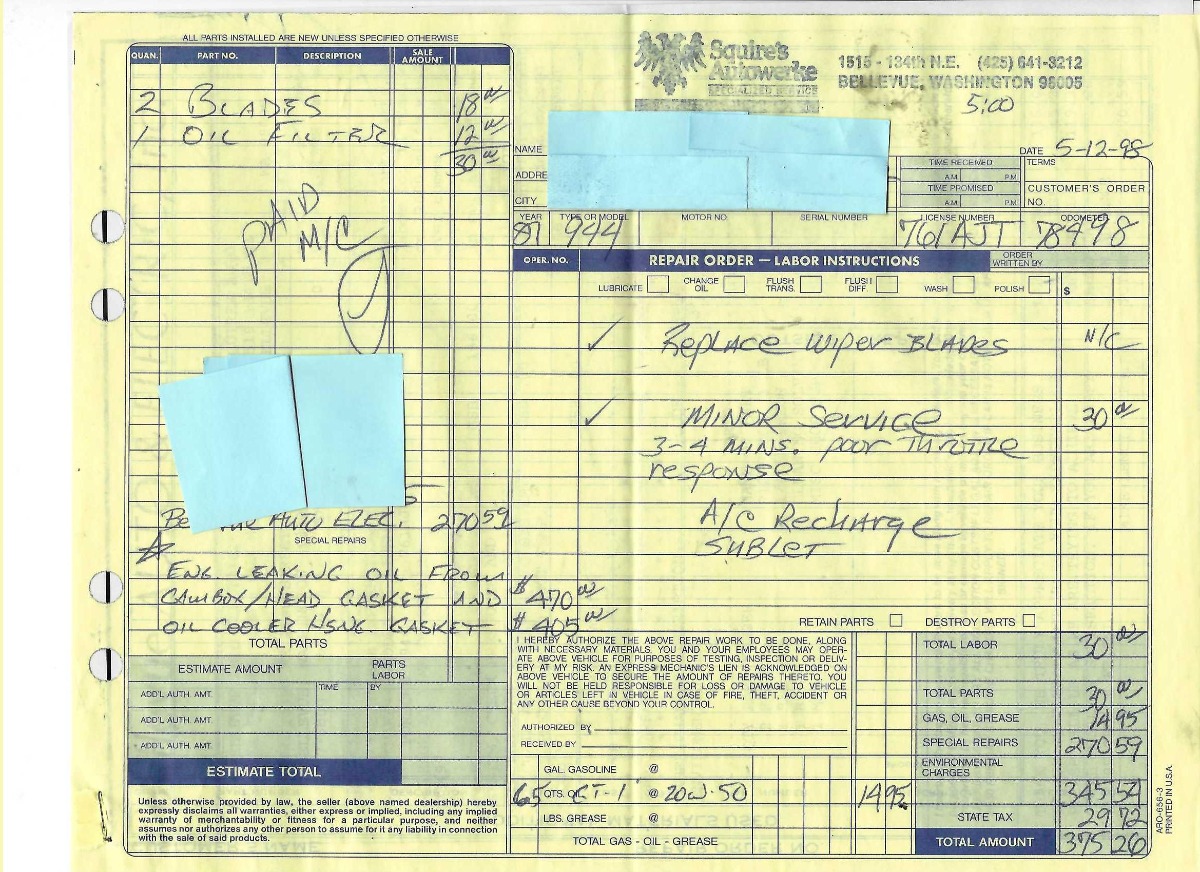 ALL PARTS INSTALLED ARE NEW UNLESS SPECIFIED OTHERWISE
QUAN. PART NO. DESCRIPTION SALE AMOUNT
2 BLADES 18 00
1 OIL FILTER 12 00
30 00
PAID
M/C
AUTO ELEC. 270 59
SPECIAL REPAIRS
ENG. LEAKING OIL FROM
CAMBOX/HEAD GASKET AND $470 00
OIL COOLER HSNG. GASKET $405 00
TOTAL PARTS
ESTIMATE AMOUNT PARTS LABOR
ADD'L AUTH. AMT. TIME BY
ADD'L AUTH. AMT.
ADD'L AUTH. AMT.
ESTIMATE TOTAL
Unless otherwise provided by law, the seller (above named dealership) hereby
expressly disclaims all warranties, either express or implied, including any implied
warranty of merchantability or fitness for a particular purpose, and neither
assumes nor authorizes any other person to assume for it any liability in connection
with the sale of said products.
Squire's
Autowerke
SPECIALIZED SERVICE
1515 - 134th N.E. (425) 641-3212
BELLEVUE, WASHINGTON 98005
5:00
NAME
ADDRE
CITY
DATE 5-12-98
TIME RECEIVED
A.M. P.M.
TIME PROMISED
A.M. P.M.
TERMS
CUSTOMER'S ORDER
NO.
YEAR TYPE OR MODEL MOTOR NO. SERIAL NUMBER LICENSE NUMBER ODOMETER
87 944 761AJT 78498
OPER. NO. REPAIR ORDER — LABOR INSTRUCTIONS ORDER WRITTEN BY
LUBRICATE CHANGE OIL FLUSH TRANS. FLUSH DIFF. WASH POLISH $
✓ Replace Wiper BLADES N/C
✓ MINOR Service 30 00
3-4 MINS. poor Throttle
response
A/C Recharge
SUBLET
RETAIN PARTS DESTROY PARTS
I HEREBY AUTHORIZE THE ABOVE REPAIR WORK TO BE DONE, ALONG
WITH NECESSARY MATERIALS. YOU AND YOUR EMPLOYEES MAY OPER-
ATE ABOVE VEHICLE FOR PURPOSES OF TESTING, INSPECTION OR DELIV-
ERY AT MY RISK. AN EXPRESS MECHANIC'S LIEN IS ACKNOWLEDGED ON
ABOVE VEHICLE TO SECURE THE AMOUNT OF REPAIRS THERETO. YOU
WILL NOT BE HELD RESPONSIBLE FOR LOSS OR DAMAGE TO VEHICLE
OR ARTICLES LEFT IN VEHICLE IN CASE OF FIRE, THEFT, ACCIDENT OR
ANY OTHER CAUSE BEYOND YOUR CONTROL.
AUTHORIZED BY
RECEIVED BY
GAL. GASOLINE @
6.5 QTS. OIL GT-1 @ 20W-50 14 95
LBS. GREASE @
TOTAL GAS - OIL - GREASE
TOTAL LABOR 30 00
TOTAL PARTS 30 00
GAS, OIL, GREASE 14 95
SPECIAL REPAIRS 270 59
ENVIRONMENTAL CHARGES
345 54
STATE TAX 29 72
TOTAL AMOUNT 375 26
ARO-656-3
PRINTED IN U.S.A.